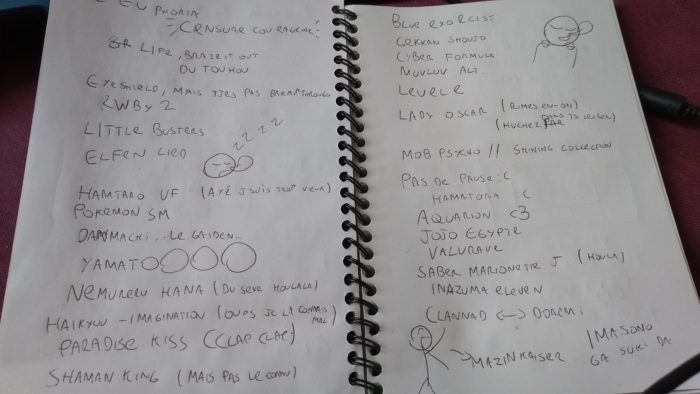 EUPHORIA
CENSURE COURAGEUSE!
LIFE, BRAZE IT OUT
DU TOUHOU
EYESHIELD, MAIS PAS BREAKTHROUGH
RWBY 2
LITTLE BUSTERS
ELFEN LIED
ZZZZ
HAMTARO VF (AYÉ J'SUIS TROP VEUX)
POKEMON SM
DANMACHI... LE GAIDEN..
YAMATOOOOO
NEMURERU HANA (DU SEXE HOULALA)
HAIKYUU - IMAGINATION (OUPS JE LA CONNAIS MAL)
PARADISE KISS (CLAP CLAP)
SHAMAN KING (MAIS PAS LE CONNU)
BLUE EXORCIST
GEKKAN SHOUJO
CYBER FORMULA
MUVLUV ALT.
LEVEL E
LADY OSCAR (RIMES EN -ON)
MOB PSYCHO // SHINING COLLECTION
PAS DE PAUSE :C
HAMATORA :C
AQUARION <3
JOJO EGYPTE
VALVRAVE
SABER MARIONETTE J (HOULA)
INAZUMA ELEVEN
CLANNAD <-> DOREMI
MAZINKAISER
IMA SONO
GA SUKI DA